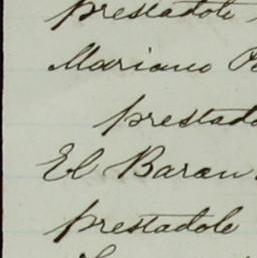 prestadole
Mariano
prestado
El Baran
prestadole